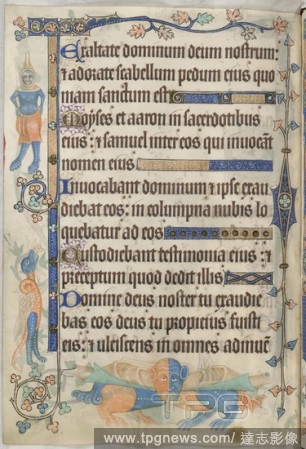 Exaltate dominum deum nostrum:
⁊ adorate scabellum pedum eius quo
niam sanctum est
Moyses et aaron in sacerdotibus
eius: ⁊ samuel inter eos qui inuocāt
nomen eius
Inuocabant dominum ⁊ ipse exau
diebat eos: in columpna nubis lo
quebatur ad eos
Custodiebant testimonia eius: ⁊
preceptum quod dedit illis
Domine deus noster tu exaudie
bas eos deus tu propicius fuisti
eis: ⁊ ulciscens in omnes adinuē
TPG
www.tpgnews.com/ 達志影像